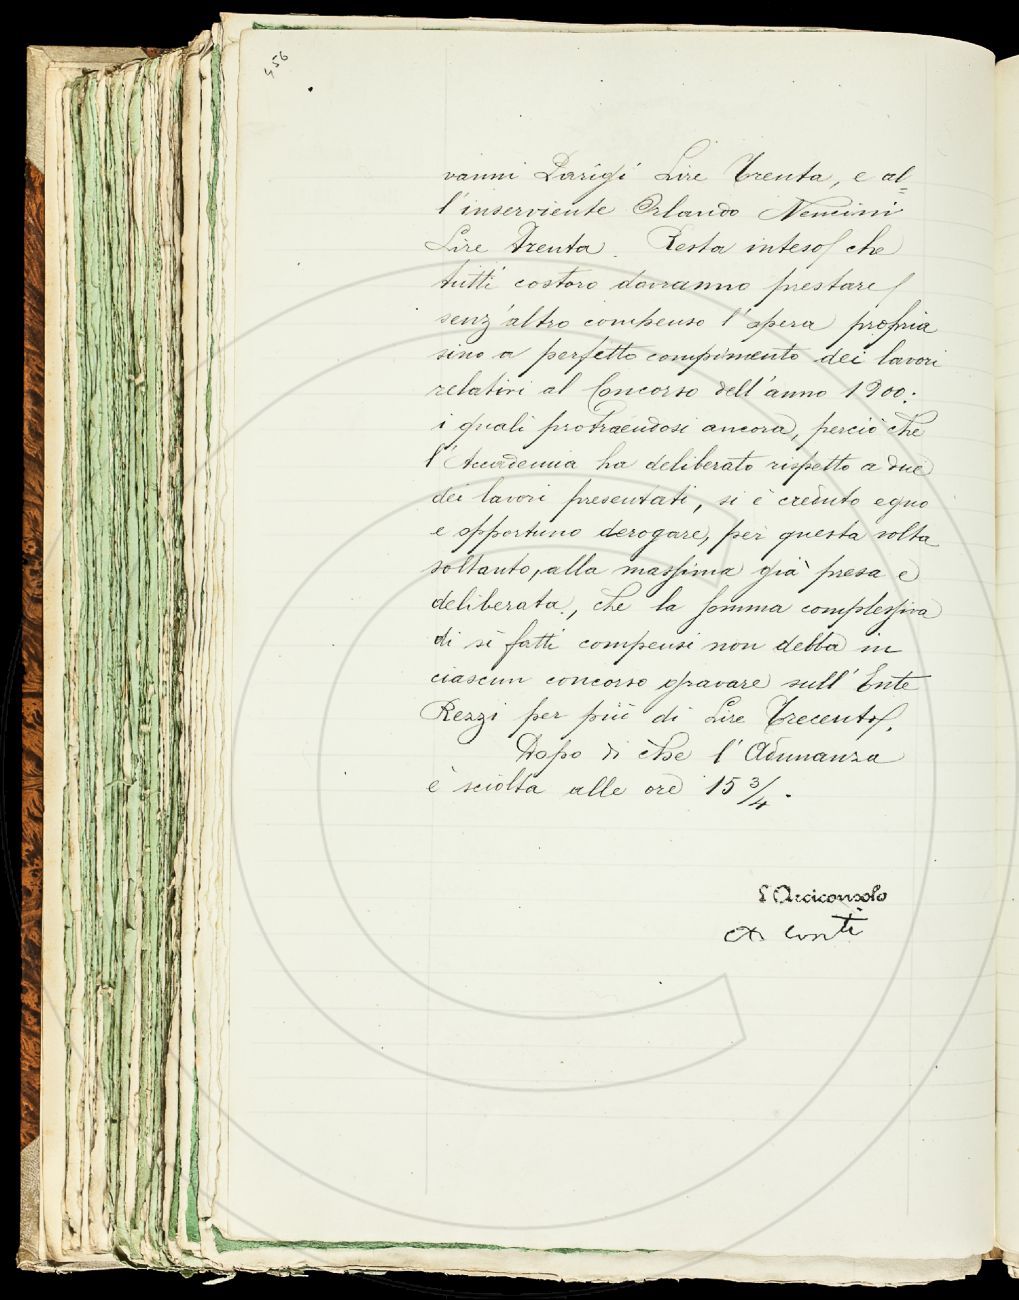 456
vanni Parigi Lire Trenta, e al=
l'inserviente Orlando Nencini
Lire Trenta. Resta inteso che
tutti costoro dovranno prestare
senz'altro compenso l'opera propria
sino a perfetto compimento dei lavori
relativi al Concorso dell'anno 1900:
i quali protraendosi ancora, perciò che
l'Accademia ha deliberato rispetto a due
dei lavori presentati, si è creduto equo
e opportuno derogare, per questa volta
soltanto, alla massima già presa e
deliberata, che la somma complessiva
di sì fatti compensi non debba in
ciascun concorso gravare sull'Ente
Rezzi per più di Lire Trecento.
Dopo di che l'Adunanza
è sciolta alle ore 15 3/4.
L'Arciconsolo
A. Conti